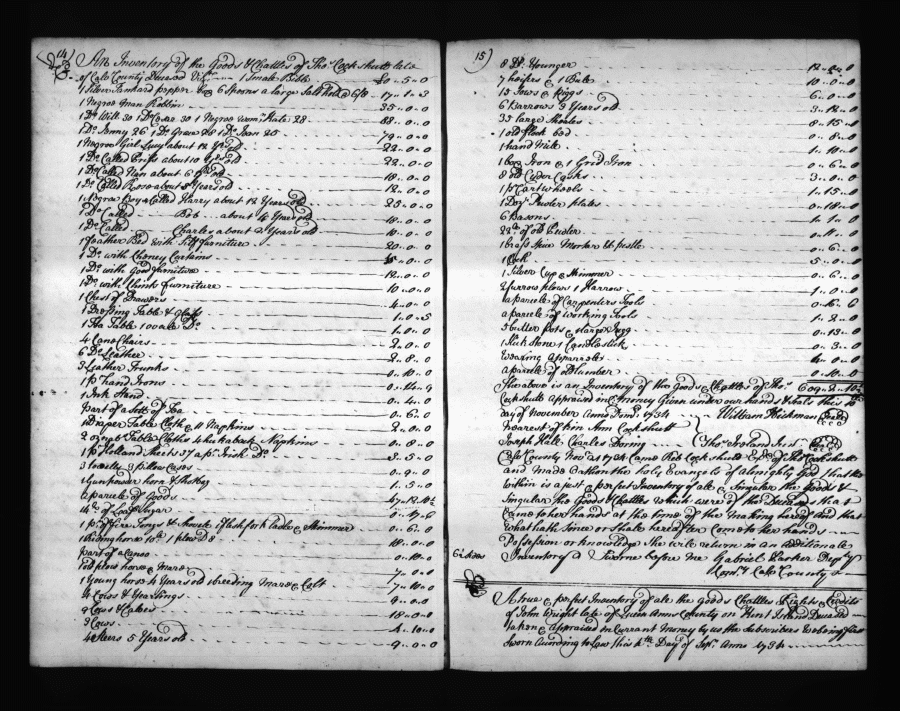 14)
An Inventory of the Goods & Chattles of Thos Cockshutt late
of Calv County Deceased Vizt 1 Small Bible 0 „ 5 „ 0
1 Silver Tankard pepper box 6 Spoons a large Salt 17 „ 1 „ 3
1 Negroe Man Robbin 35 „ 0 „ 0
1 Do Will 30 1 Do Cesar 30 1 Negroe Womn Kate 28 88 „ 0 „ 0
1 Do Jenny 26 1 Do Grace 28 1 Do Joan 25 79 „ 0 „ 0
1 Negroe Girl Lucy about 12 Yrs old 22 „ 0 „ 0
1 Do Called about 10 Yrs old 22 „ 0 „ 0
1 Do Called Nan about 6 Yrs old 18 „ 0 „ 0
1 Do Called Rose about 3 Years old 12 „ 0 „ 0
1 Negroe Boy Called Harry about 12 Years old 25 „ 0 „ 0
1 Do Called Bob about 4 Years old 18 „ 0 „ 0
1 Do Called Charles about 2 Years old 10 „ 0 „ 0
1 Feather Bed with furniture 20 „ 0 „ 0
1 Do with Cheney Curtains 15 „ 0 „ 0
1 Do with Good furniture 12 „ 0 „ 0
1 Do with furniture 10 „ 0 „ 0
1 Chest of Drawers 4 „ 0 „ 0
1 Dressing Table & Glass 1 „ 0 „ 5
1 Tea Table 1 Do 1 „ 0 „ 0
4 Cane Chairs 2 „ 0 „ 0
6 Do Leather 2 „ 8 „ 0
3 Leather Trunks 0 „ 10 „ 0
1 pr hand Irons 0 „ 14 „ 9
1 Ink Stand 0 „ 4 „ 0
part of a Sett of Tea 0 „ 6 „ 0
1 Diaper Table Cloth & 11 Napkins 2 „ 0 „ 0
2 oznab Table Cloths 4 huckaback Napkins 0 „ 8 „ 0
1 pr Holland Sheets 37 a pr Irish Do 3 „ 5 „ 0
3 Towels 3 pillow Cases 0 „ 9 „ 0
1 Gunpowder horn & Shotbag 1 „ 5 „ 0
a parcele of Goods
Loaf Sugar 0 „ 17 „ 6
1 pr of fire Tongs & shovele 1 flesh fork ladle & Skimmer 0 „ 6 „ 0
1 Riding horse 10 £ 1 plow Do 8 18 „ 0 „ 0
part of a Canoe 0 „ 10 „ 0
1 old plow horse & Mare 7 „ 0 „ 0
1 Young horse 4 Years old 1 breeding Mare & Colt 7 „ 10 „ 0
4 Cows & Yearlings 9 „ 0 „ 0
9 Cows & Calves 18 „ 0 „ 0
3 Cows 4 „ 10 „ 0
4 Steers 5 Years old 9 „ 0 „ 0
15)
8 Do Younger 12 „ 0 „ 0
7 heifers & 1 Bull 10 „ 0 „ 0
15 Sows & Piggs 6 „ 0 „ 0
6 Barrows 3 Years old 3 „ 12 „ 0
35 large Shoates 8 „ 15 „ 0
1 old flock bed 0 „ 8 „ 0
1 hand Mill 1 „ 10 „ 0
1 box Iron & 1 Grid Iron 0 „ 6 „ 0
8 old Cyder Casks 3 „ 0 „ 0
1 pr Cart wheels 1 „ 15 „ 0
1 Dozn Pewter plates 0 „ 18 „ 0
6 Basons 1 „ 1 „ 0
22lb of old Pewter 0 „ 11 „ 0
1 brass Skin Mortar & pestle 0 „ 6 „ 0
1 Clock 5 „ 0 „ 0
1 Silver Cup & Skimmer 0 „ 6 „ 0
2 furrow plows 1 Harrow 1 „ 0 „ 0
a parcele of Carpenters Tools 0 „ 16 „ 6
a parcele of working Tools 1 „ 2 „ 0
5 butter pots & large Jugg 0 „ 13 „ 0
1 Slick Stone 1 Candlestick 0 „ 3 „ 0
Wearing Apparrele 4 „ 0 „ 0
a parcele of old Lumber 0 „ 10 „ 0
The above is an Inventory of the Goods & Chattles of Thos 609 „ 2 „ 10½
Cockshutt appraised in Money Given under our hands & Seals this
day of November Anno Domi 1734 William Hickman (Seal)
Nearest of kin Ann Cockshutt
Joseph Hall, Charles Boring Thos Ireland Junr (Seal)
Calv County Novr 1734 Came Reb Cockshutt Exx of Thos Cockshutt
and made Oath on the holy Evangels of almighty God that the
within is a just & perfect Inventory of all & Singular the Goods &
Singular the Goods & Chattles which were of the Deceased that
Came to her hands at the time of the Making hereof And that
what hath Since or Shale hereafter Come to her hands
Possession or knowledge She will return in an additionale
Inventory Sworne before me Gabriel Parker Depty
Comy Calv County
A true & perfect Inventory of all the goods Chattles Rights & Credits
of John Wright late of Queen Anns County on Kent Island Deceased
taken & appraised in Currant Money by us the Subscribers being first
Sworn According to Law this Day of Sepr Anno 1734